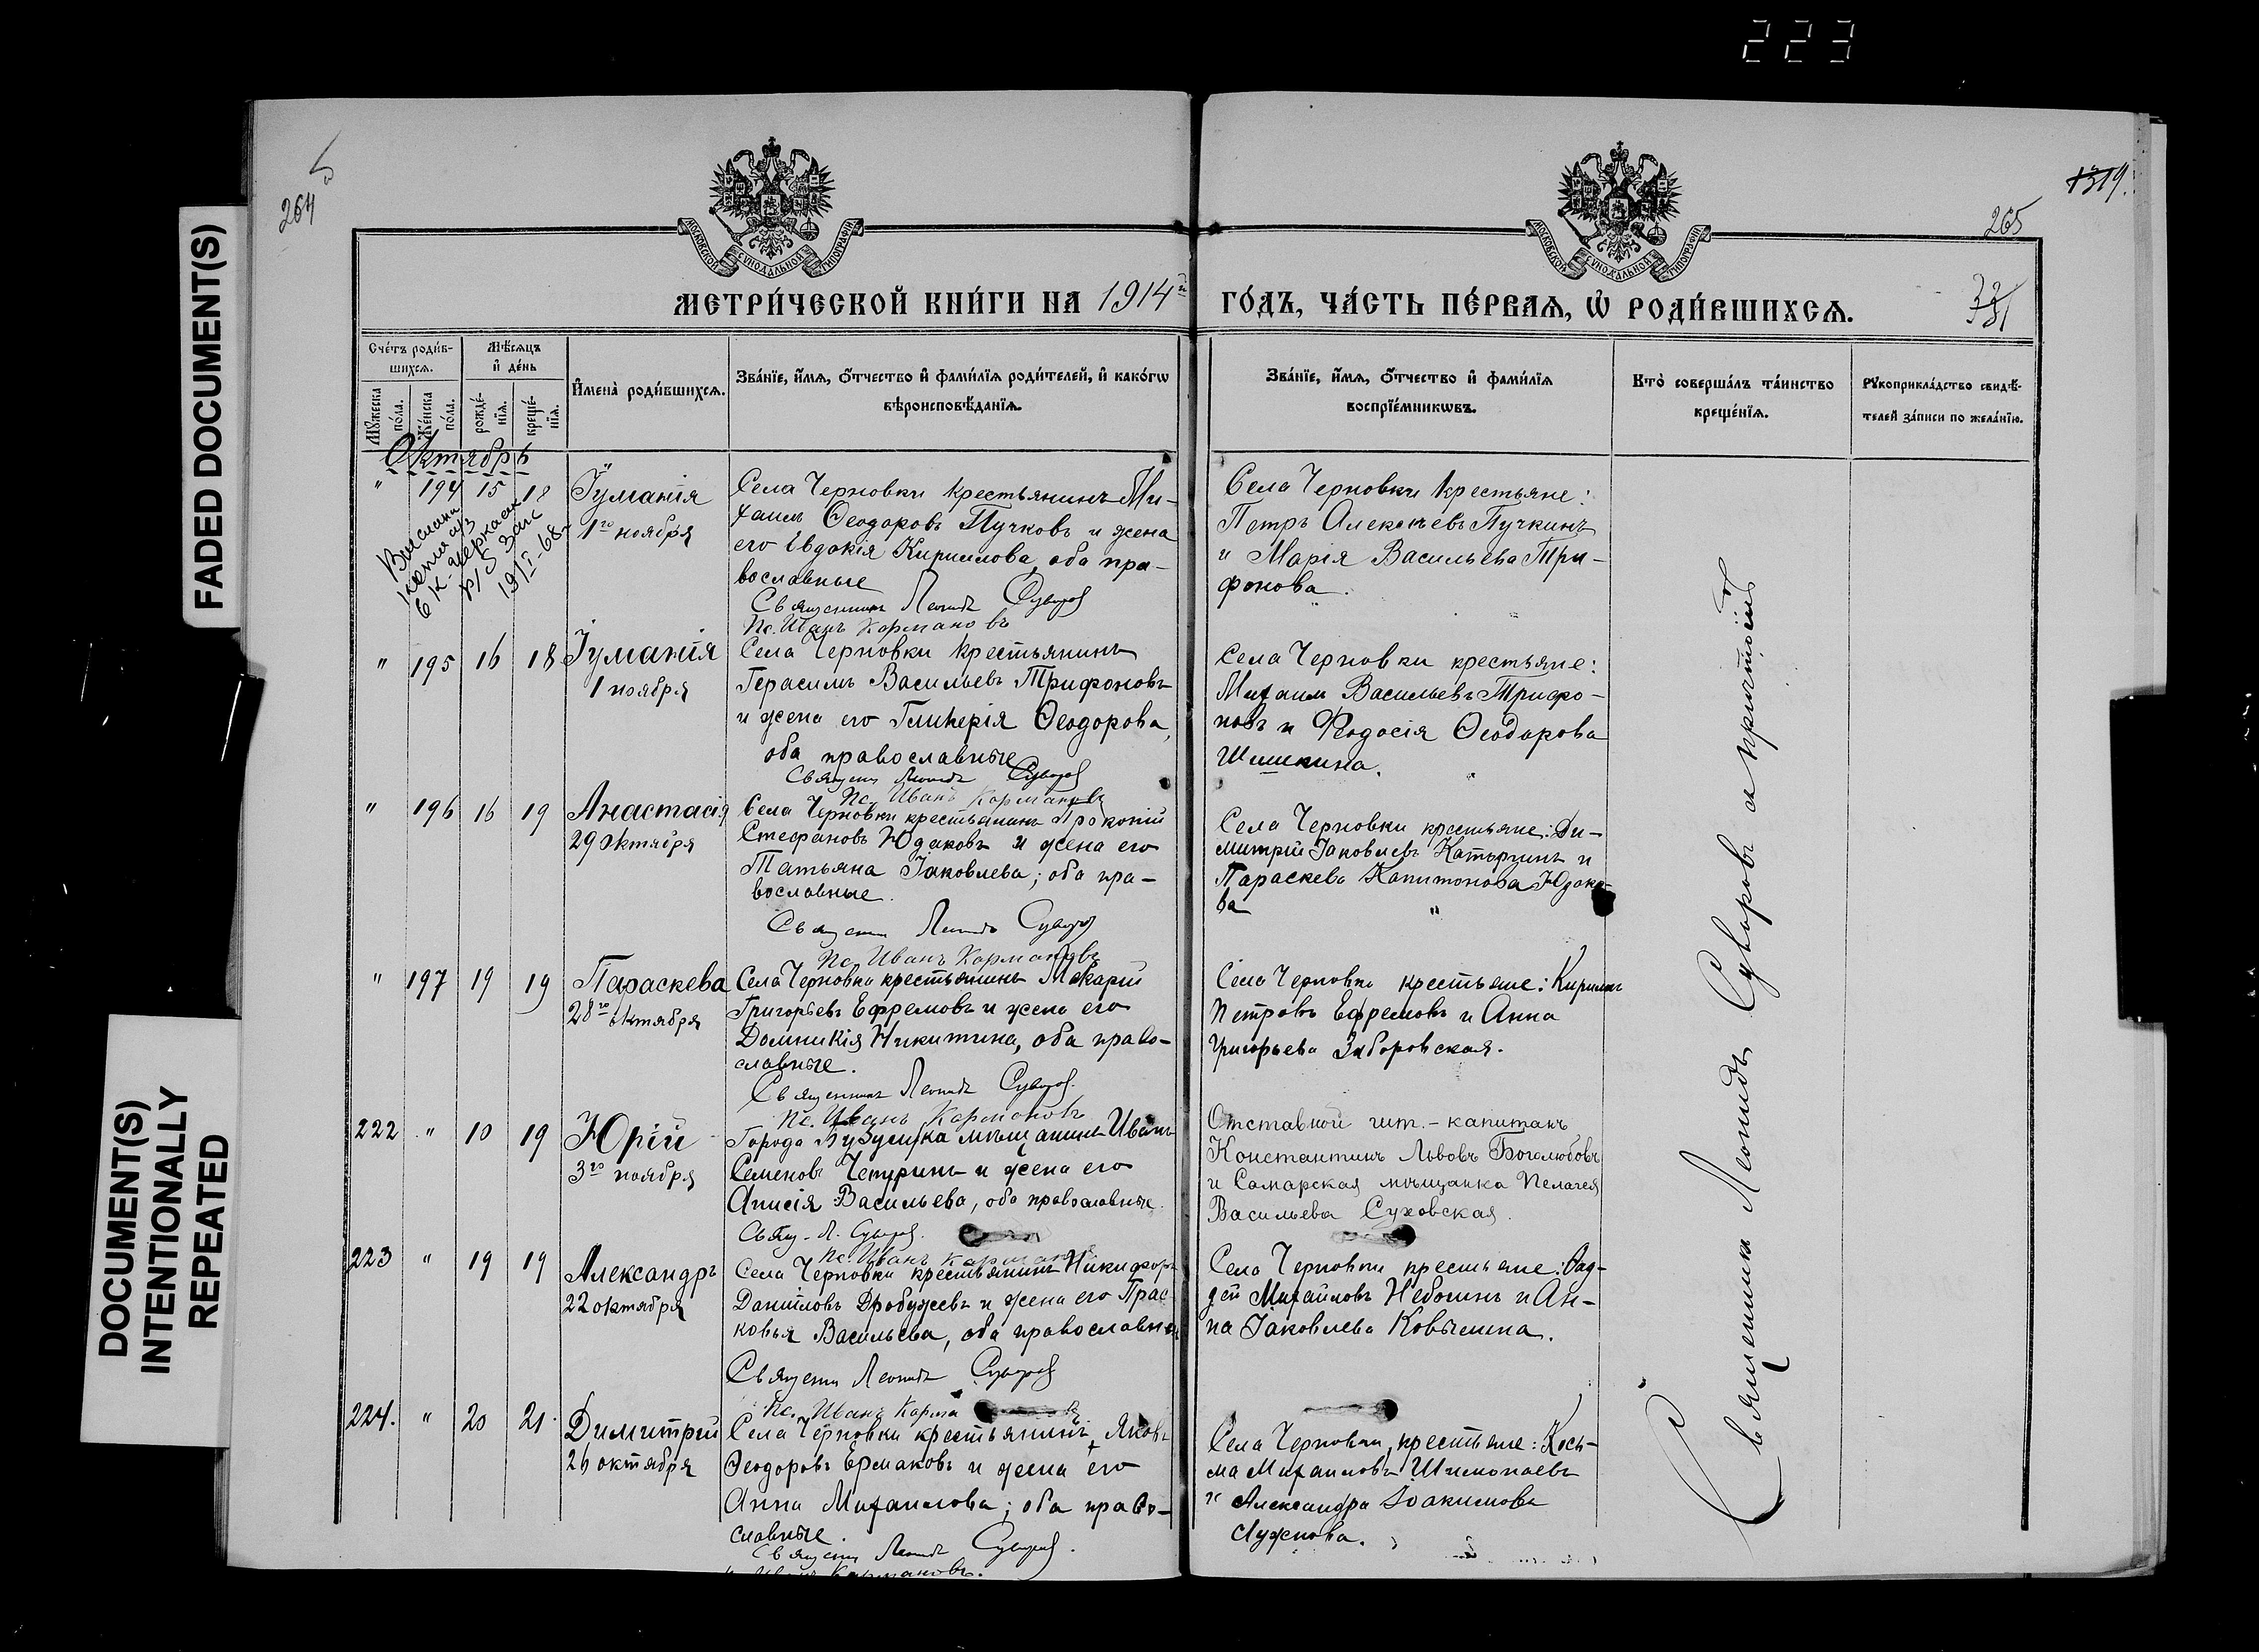 223
FADED DOCUMENT(S)
DOCUMENT(S)
INTENTIONALLY
REPEATED
264
1319.
265
МОСКОВСКОЙ СѴНОДАЛЬНОЙ ТИПОГРАФІИ
МОСКОВСКОЙ СѴНОДАЛЬНОЙ ТИПОГРАФІИ
МЕТРИ́ЧЕСКОЙ КНИ́ГИ НА 1914й
ГО́ДЪ, ЧА́СТЬ ПЕ́РВАѦ, Ѡ҆ РОДИ́ВШИХСѦ.
331
Сче́тъ роди́в-
шихсѧ.
Мѣ́сѧцъ
и҆ де́нь
Мꙋ́жеска по́ла.
Же́нска по́ла.
рожде́-нїѧ.
креще́-нїѧ.
И҆мена̀ роди́вшихсѧ.
Зва́нїе, и҆́мѧ, ѻ҆́тчество и҆ фами́лїѧ роди́телей, и҆ како́гѡ
вѣроисповѣ́данїѧ.
Зва́нїе, и҆́мѧ, ѻ҆́тчество и҆ фами́лїѧ
воспрїе́мникѡвъ.
Кто̀ соверша́лъ та́инство
креще́нїѧ.
Рꙋкоприкла́дство свидѣ́-
телей за́писи по жела́нїю.
Октябрь
" 194 15 18
Іуманія
1го ноября
Села Черновки крестьянинъ Ми-
хаилъ Ѳеодоровъ Пучковъ и жена
его Евдокія Кириллова, оба пра-
вославные
Священникъ Леонидъ Суворов
Пс. Иванъ Кармановъ
Села Черновки крестьяне:
Петръ Алексѣевъ Пучкинъ
и Марія Васильева Три-
фонова.
Выслана
копия
19/I-68
" 195 16 18
Іуманія
1 ноября
Села Черновки крестьянинъ
Герасимъ Васильевъ Трифоновъ
и жена его Гликерія Ѳеодорова,
оба православные
Священ Леонидъ Суворов
Пс. Иванъ Кармановъ
Села Черновки крестьяне:
Михаилъ Васильевъ Трифо-
новъ и Ѳеодосія Ѳеодорова
Шишкина.
" 196 16 19
Анастасія
29 октября
Села Черновки крестьянинъ Прокопій
Стефановъ Юдаковъ и жена его
Татьяна Іаковлева; оба пра-
вославные.
Священ Леонидъ Суворов
Пс. Иванъ Кармановъ
Села Черновки крестьяне: Ди-
митрій Іаковлевъ Катырчинъ и
Параскева Капитонова Юдако-
ва "
" 197 19 19
Параскева
28го октября
Села Черновки крестьянинъ Макарій
Григорьевъ Ефремовъ и жена его
Домникія Никитина, оба право-
славные.
Священникъ Леонидъ Суворов.
Пс. Иванъ Кармановъ
Села Черновки крестьяне: Кириллъ
Петровъ Ефремовъ и Анна
Григорьева Заборовская.
222 " 10 19
Юрій
3го ноября
Города Бузулука мѣщанинъ Иванъ
Семеновъ Чепуринъ и жена его
Анисія Васильева, оба православные.
Свящ. Л. Суворов.
Пс. Иванъ Карман
Отставной шт.-капитанъ
Константинъ Львовъ Боголюбовъ
и Самарская мѣщанка Пелагея
Васильева Суховская.
223 " 19 19
Александръ
22 октября
Села Черновки крестьянинъ Никифоръ
Даниловъ Дробужевъ и жена его Прас
ковья Васильева, оба православные
Священ Леонидъ Суворов
Пс. Иванъ Карма
Села Черновки крестьяне: Ѳад-
дей Михайловъ Небогинъ и Ан-
на Іаковлева Ковылина.
224. " 20 21
Димитрій
26 октября
Села Черновки крестьянинъ Яковъ
Ѳеодоровъ Ермаковъ и жена его
Анна Михаилова; оба право-
славные.
Священ Леонидъ Суворов.
Иванъ Кармановъ.
Села Черновки, крестьяне: Кось-
ма Михаиловъ Шимонаевъ
и Александра Іоакимова
Лужнова.
Священникъ Леонидъ Суворовъ